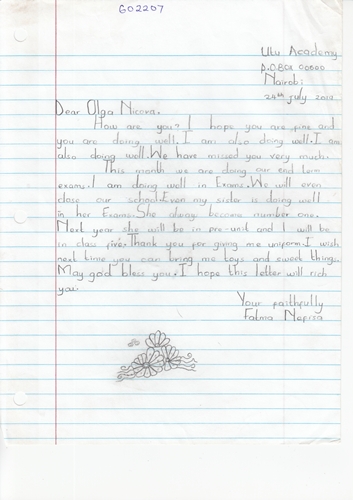 G02207
Utu Academy
P.O BOX 00000
Nairobi
24th July 2019
Dear Olga Nicova.
How are you? I hope you are fine and
you are doing well. I am also doing well. I am
also doing well. We have missed you very much.
This month we are doing our end term
exams. I am doing well in Exams. We will even
close our school. Even my sister is doing well
in her Exams. She always become number one.
Next year she will be in pre-unit and I will be
in class five. Thank you for giving me uniform. I wish
next time you can bring me toys and sweet things.
May god bless you. I hope this letter will rich
you.
Your faithfully
Fatma Nefisa